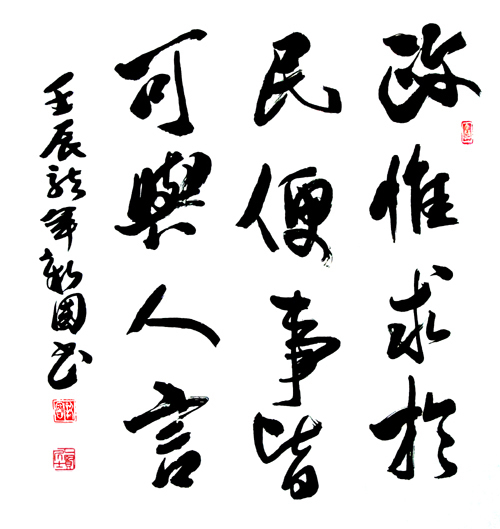 政惟求於
民便事皆
可與人言
壬辰龙年新國书